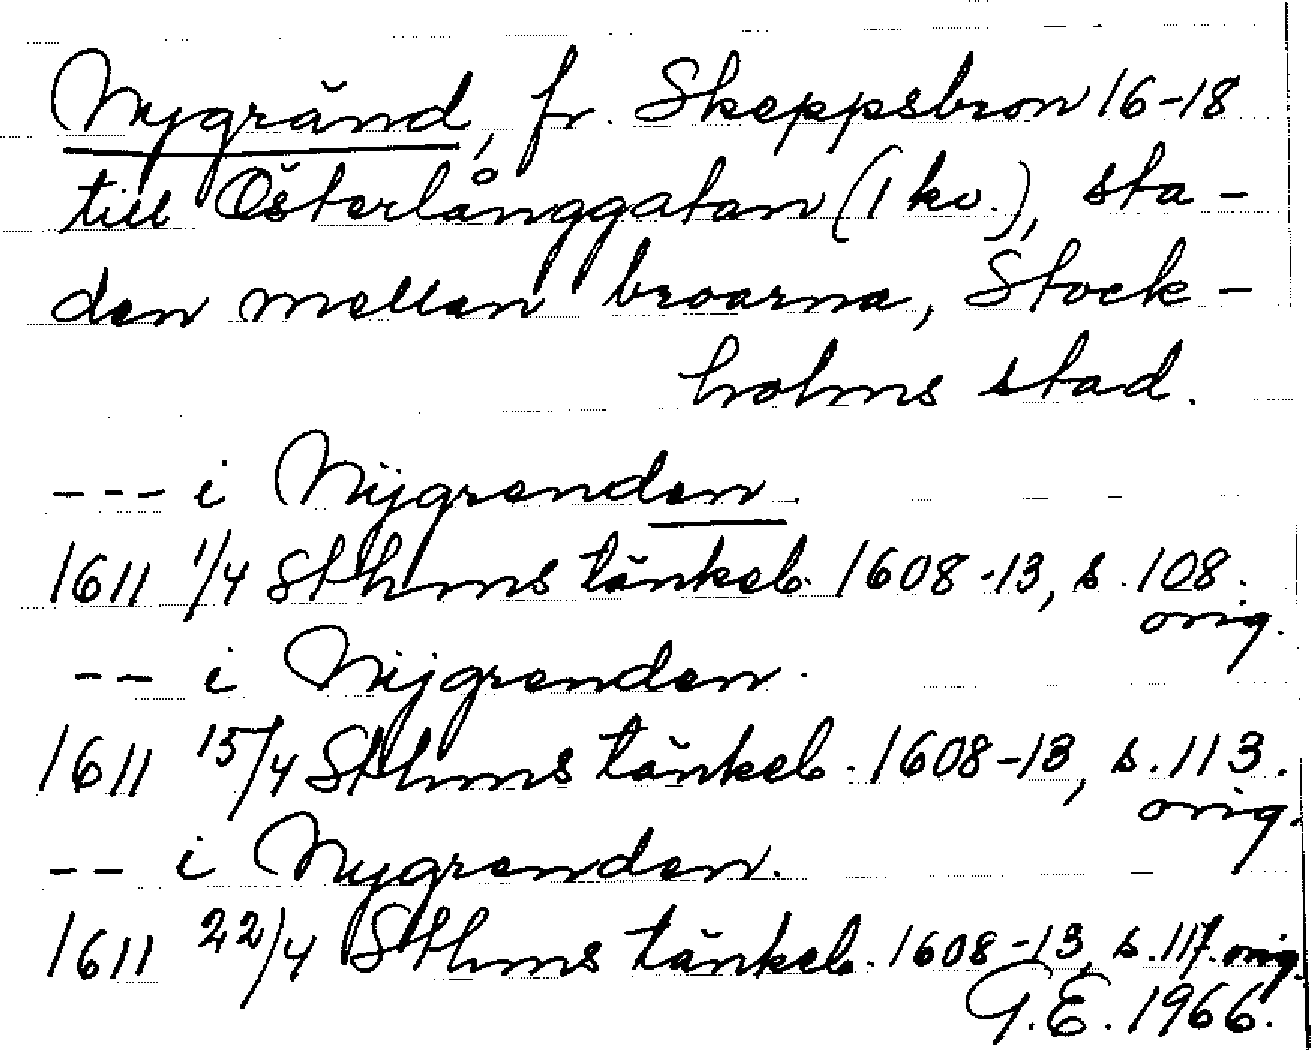 Nygränd, fr. Skeppsbron 16-18
till Österlånggatan (1 kv.), sta-
den mellan broarna, Stock-
holms stad.
--- i Nÿgrenden.
1611 1/4 Sthms tänkeb. 1608-13, s. 108.
orig.
-- i Nijgrenden.
1611 15/4 Sthms tänkeb. 1608-13, s. 113.
orig.
-- i Nygrenden.
1611 22/4 Sthms tänkeb. 1608-13, s. 117. orig.
G.E. 1966.